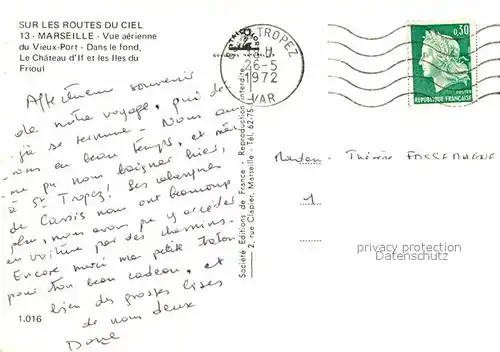 SUR LES ROUTES DU CIEL
13 - MARSEILLE - Vue aérienne
du Vieux-Port - Dans le fond,
Le Château d'If et les Iles du
Frioul
Affectueux souvenir
de notre voyage, qui dé-
jà se termine - Nous av-
-ons eu beau temps, et mê-
me pu nous baigner hier,
à St Tropez! Les calanques
de Cassis nous ont beaucoup
plu, nous avons pu y accéder
en voiture par des chemins -
Encore merci ma petite
pour ton beau cadeau, et
bien des grosses bises
de nous deux
1.016
Société Editions de France - Reproduction interdite
2, rue Clapier, Marseille - Tél. 62-75
ST TROPEZ
26-5
1972
VAR
0,30
POSTES
REPUBLIQUE FRANÇAISE
Thérèse
privacy protection
Datenschutz